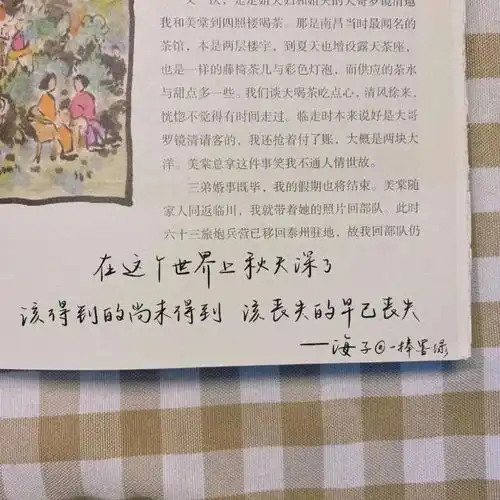 我和美棠到四照楼喝茶。那是南昌当时最闻名的
茶馆，本是两层楼宇，到夏天也增设露天茶座，
也是一样的藤椅茶几与彩色灯泡，而供应的茶水
与甜点多一些。我们谈天喝茶吃点心，清风徐来，
恍惚不觉得有时间走过。临走时本来说好是大哥
罗镜清请客的，我还抢着付了账，大概是两块大
洋。美棠总拿这件事笑我不通人情世故。
三弟婚事既毕，我的假期也将结束。美棠随
家人同返临川，我就带着她的照片回部队。此时
六十三旅炮兵营已移回泰州驻地，故我回部队仍
在这个世界上秋天深了
该得到的尚未得到 该丧失的早已丧失
——海子@一捧墨绿